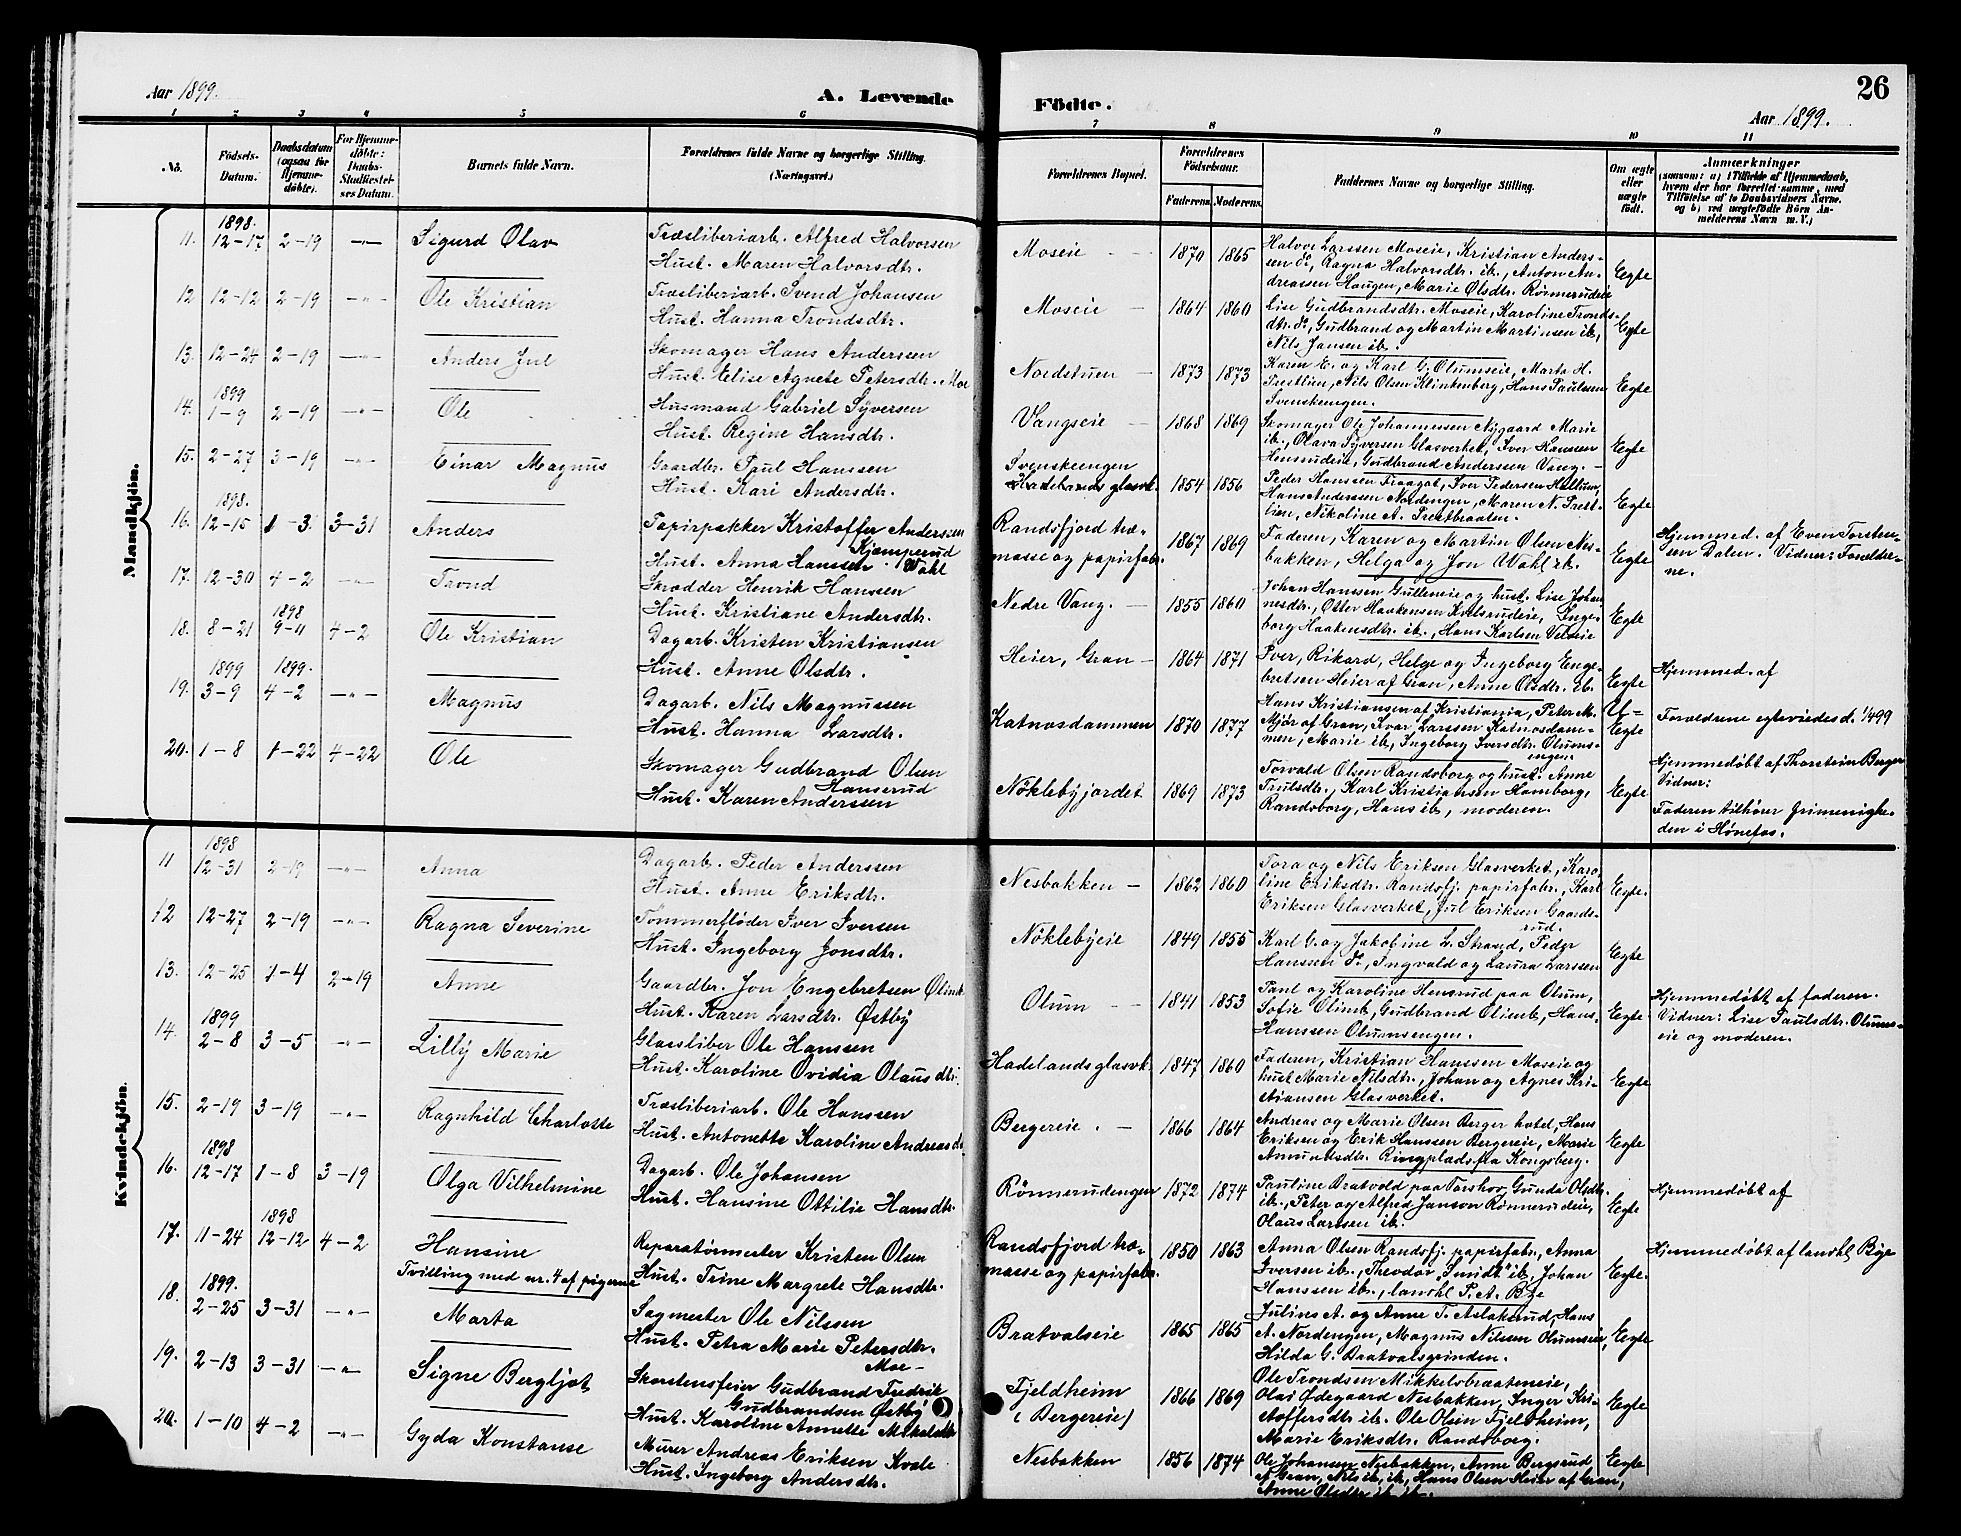 Aar 1899.
A. Levende
Födte.
26
Aar 1899.
1 2 3 4 5 6 7 8 9 10 11
No.
Födsels-Datum.
Daabsdatum (ogsaa for Hjemme-döbte).
For Hjemme-döbte: Daabs-Stadfæstel-ses Datum.
Barnets fulde Navn.
Forældrenes fulde Navne og borgerlige Stilling.
(Næringsvei.)
Forældrenes Bopæl.
Forældrenes Födselsaar.
Faderens. Moderens.
Faddernes Navne og borgerlige Stilling.
Om ægte eller uægte födt.
Anmærkninger
(saasom: a) i Tilfælde af Hjemmedaab, hvem der har forrettet samme, med Tilföielse af to Daabsvidners Navne, og b) ved uægtefödte Börn An-melderens Navn m. V.)
Mandkjön.
11. 1898. 12-17 2-19 -"- Sigurd Olav
Træsliberiarb. Alfred Halvorsen
Hust. Maren Halvorsdtr.
Moseie 1870 1865
Halvor Larssen Moseie, Kristian Anders-
sen do, Ragna Halvorsdtr. ib., Anton An-
dreassen Haugen, Marie Olsdtr. Rönnerudeie
Egte
12 12-12 2-19 -"- Ole Kristian
Træsliberiarb. Svend Johansen
Hust. Hanna Trondsdtr.
Moseie 1864 1860
Lise Gudbrandsdtr. Moseie, Karoline Tronds-
dtr. do, Gudbrand og Martin Martinsen ib.,
Nils Jansen ib.
Egte
13. 12-24 2-19 -"- Anders Jul
Skomager Hans Anderssen
Hust. Elise Agnete Petersdtr. Moe
Nordstuen 1873 1873
Karen E. og Karl G. Olumseie, Marta H.
Trestlien, Nils Olsen Klinkenberg, Hans Paulssen
Svenskeengen.
Egte
14. 1899 1-9 2-19 -"- Ole
Husmand Gabriel Syversen
Hust. Regine Hansdtr.
Vangseie 1868 1869
Skomager Ole Johannessen Nygaard Marie
ib., Olava Syversen Glasverket, Iver Hanssen
Hensrudeie, Gudbrand Anderssen Vang.
Egte
15. 2-27 3-19 -"- Einar Magnus
Gaardbr. Paul Hanssen
Hust. Kari Andersdtr.
Svenskeengen
Hadelands glasvk. 1854 1856
Peder Hanssen Fraagot, Iver Pedersen Hallum,
Hans Anderssen Nordengen, Maren N. Trest-
lien, Nikoline A. Trestbraaten.
Egte
16. 1898. 12-15 1-3. 3-31 Anders
Papirpakker Kristoffer Anderssen
Kjæmperud
Hust. Anna Hanssen Wahl
Randsfjord træ-
masse og papirfabr. 1867 1869
Faderen, Karen og Martin Olsen Nes-
bakken, Helga og Jon Wahl rk.
Egte
Hjemmed. af Even Torsten-
sen Dalen. Vidner: Forældre-
ne.
17. 12-30 4-2 -"- Trond
Skrædder Henrik Hanssen
Hust. Kristiane Andersdtr.
Nedre Vang. 1855 1860
Johan Hanssen Gulleneie og hust. Lise Johan-
nesdtr., Otter Haakensen Kittilsrudeie, Inge-
borg Haakensdtr. ib., Hans Karlsen Velseie
Egte
18. 8-21 1898 9-11 4-2 Ole Kristian
Dagarb. Kristen Kristiansen
Hust. Anne Olsdtr.
Heier, Gran 1864 1871
Iver, Rikard, Helge og Ingeborg Enge-
bretsen Heier af Gran, Anne Olsdtr. ib.
Egte
Hjemmed. af
19. 1899 3-9 1899. 4-2 -"- Magnus
Dagarb. Nils Magnussen
Hust. Hanna Larsdtr.
Katnosdammen 1870 1877
Hans Kristiansen af Kristiania, Peter M.
Mjør af Gran, Ivar Larssen Katnosdam-
men, Marie ib., Ingeborg Iversdtr. Olums-
engen.
U-
Egte
Forældrene egteviedes d. 1/4 99
20. 1-8 1-22 4-22 Ole
Skomager Gudbrand Olsen
Hanserud
Hust. Karen Anderssen
Nöklebyjordet 1869 1873
Torvald Olsen Randsborg og hust. Anne
Trulsdtr., Karl Kristiansen Homborg,
Randsborg, Hans ib., moderen.
Egte
Hjemmedøbt af Thorstein Berger
Vidner:
Faderen tilhører frimenighe-
den i Hønefos.
Kvindekjön.
11 1898 12-31 2-19 -"- Anna
Dagarb. Peder Anderssen
Hust. Anne Eriksdtr.
Nesbakken 1862 1860
Tora og Nils Eriksen Glasverket, Karo-
line Eriksdtr. Randsfj. papirfabr., Karl
Eriksen Glasverket, Jul Eriksen Gaards-
rud.
Egte.
12 12-27 2-19 -"- Ragna Severine
Tømmerfløder Iver Iversen
Hust. Ingeborg Jonsdtr.
Nöklebyeie 1849 1855
Karl G. og Jakobine L. Strand, Peder
Hanssen do, Ingvald og Laura Larssen
Egte
13. 12-25 1-4 2-19 Anne
Gaardbr. Jon Engebretsen Olimb.
Hust. Karen Larsdtr. Østby
Olum 1841 1853
Paul og Karoline Hensrud paa Olum,
Sofie Olimb, Gudbrand Olimb, Hans
Hanssen Olumsengen.
Egte
Hjemmedøbt af faderen.
Vidner: Lise Paulsdtr. Olums-
eie og moderen.
14. 1899 2-8 3-5 -"- Lilly Marie
Glassliber Ole Hanssen
Hust. Karoline Ovidia Olausdtr.
Hadelands glasvk. 1847 1860
Faderen, Kristian Hanssen Moseie og
hust. Marie Nilsdtr., Johan og Agnes Kri-
stiansen Glasverket.
Egte
15. 2-19 3-19 -"- Ragnhild Charlotte
Træsliberiarb. Ole Hanssen
Hust. Antonette Karoline Andreasdtr
Bergereie. 1866 1864
Andreas og Marie Olsen Berger hotel, Hans
Eriksen og Erik Hanssen Bergereie, Marie
Amundsdtr. Ringplads fra Kongsberg.
Egte
16. 1898 12-17 1-8 3-19 Olga Vilhelmine
Dagarb. Ole Johansen
Hust. Hansine Ottilie Hansdtr.
Rönnerudengen 1872 1874
Pauline Bratvold paa Torshov, Gunda Olsdtr.
ib., Peter og Alfred Janson Rönnerudeie,
Olaus Larssen ib.
Egte
Hjemmedøbt af
17. 11-24 1898 12-12 4-2 Hansine
Tvilling med nr. 4 af pigerne
Reparatørmester Kristen Olsen
Hust. Trine Margrete Hansdtr.
Randsfjord træ-
masse og papirfabr. 1850 1863
Anna Olsen Randsfj. papirfabr., Anna
Iversen ib., Theodor "Smidt" ib., Johan
Hanssen ib., landhl. P. A. Bye
Egte.
Hjemmedøbt af landhl. Bye
18. 1899. 2-25 3-31 -"- Marta
Sagmester Ole Nilssen
Hust. Petra Marie Petersdtr.
Moe
Bratvalseie 1865 1865
Julius A. og Anne T. Aslaksrud, Hans
A. Nordengen, Magnus Nilsen Olumseie,
Hilda G. Bratvalsgrinden.
Egte
19. 2-13 3-31 -"- Signe Bergljot
Skorstensfeier Gudbrand Fredrik
Gudbrandsen Østby
Hust. Karoline Annette Mikalsdtr
Fjeldheim
(Bergereie) 1866 1869
Ole Trondsen Mikkelsbraateneie,
Olai Ødegaard Nesbakken, Inger Kri-
stoffersdtr. ib. Ole Olsen Fjeldheim,
Marie Eriksdtr. Randsborg.
Egte
20. 1-10 4-2 -"- Gyda Konstanse
Murer Andreas Eriksen Kvale
Hust. Ingeborg Andersdtr.
Nesbakken 1856 1874
Ole Johansen Nesbakken, Anne Bergsrud,
af Gran, Nils ib. ib., Hans Olsen Heier af Gran,
Anne Olsdtr ib. ib.
Egte